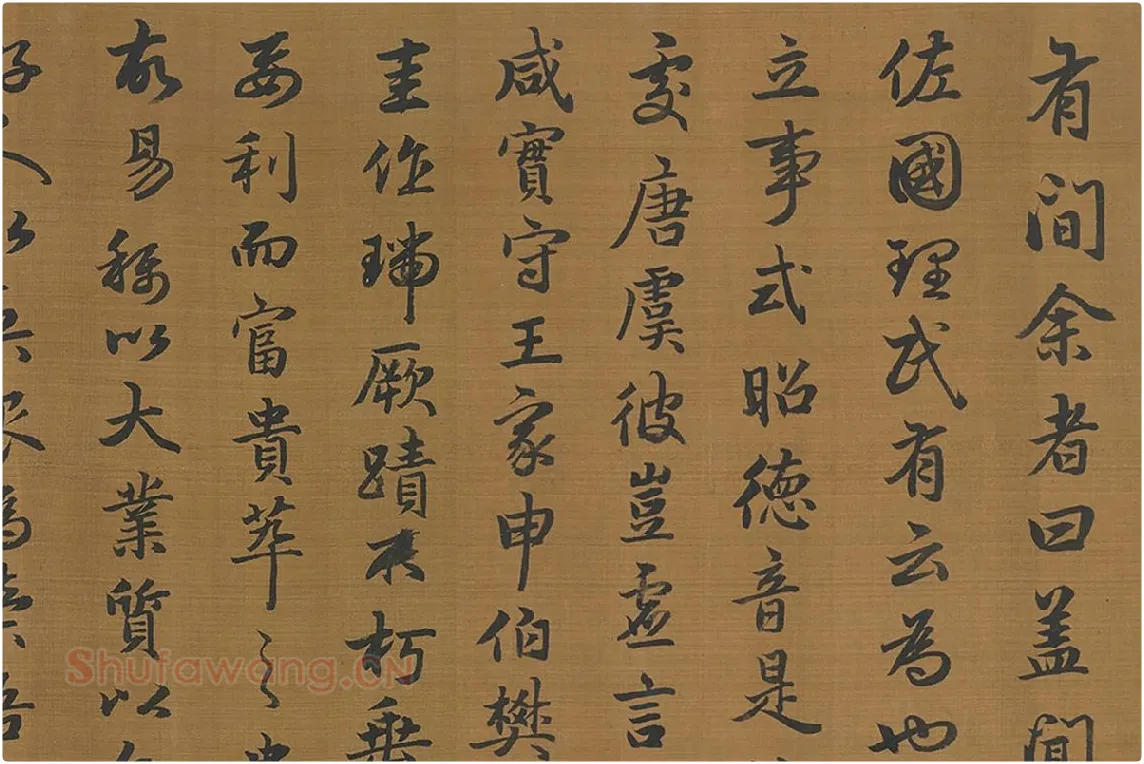 有間余者曰盖間
佐國理武有云為也
立事式昭德音是
爰唐虞彼豈虛言
咸實守王家申伯樊
圭作瑞厥蹟不朽垂
妄利而富貴萃之
故易稱以大業質以
Shufawang.CN